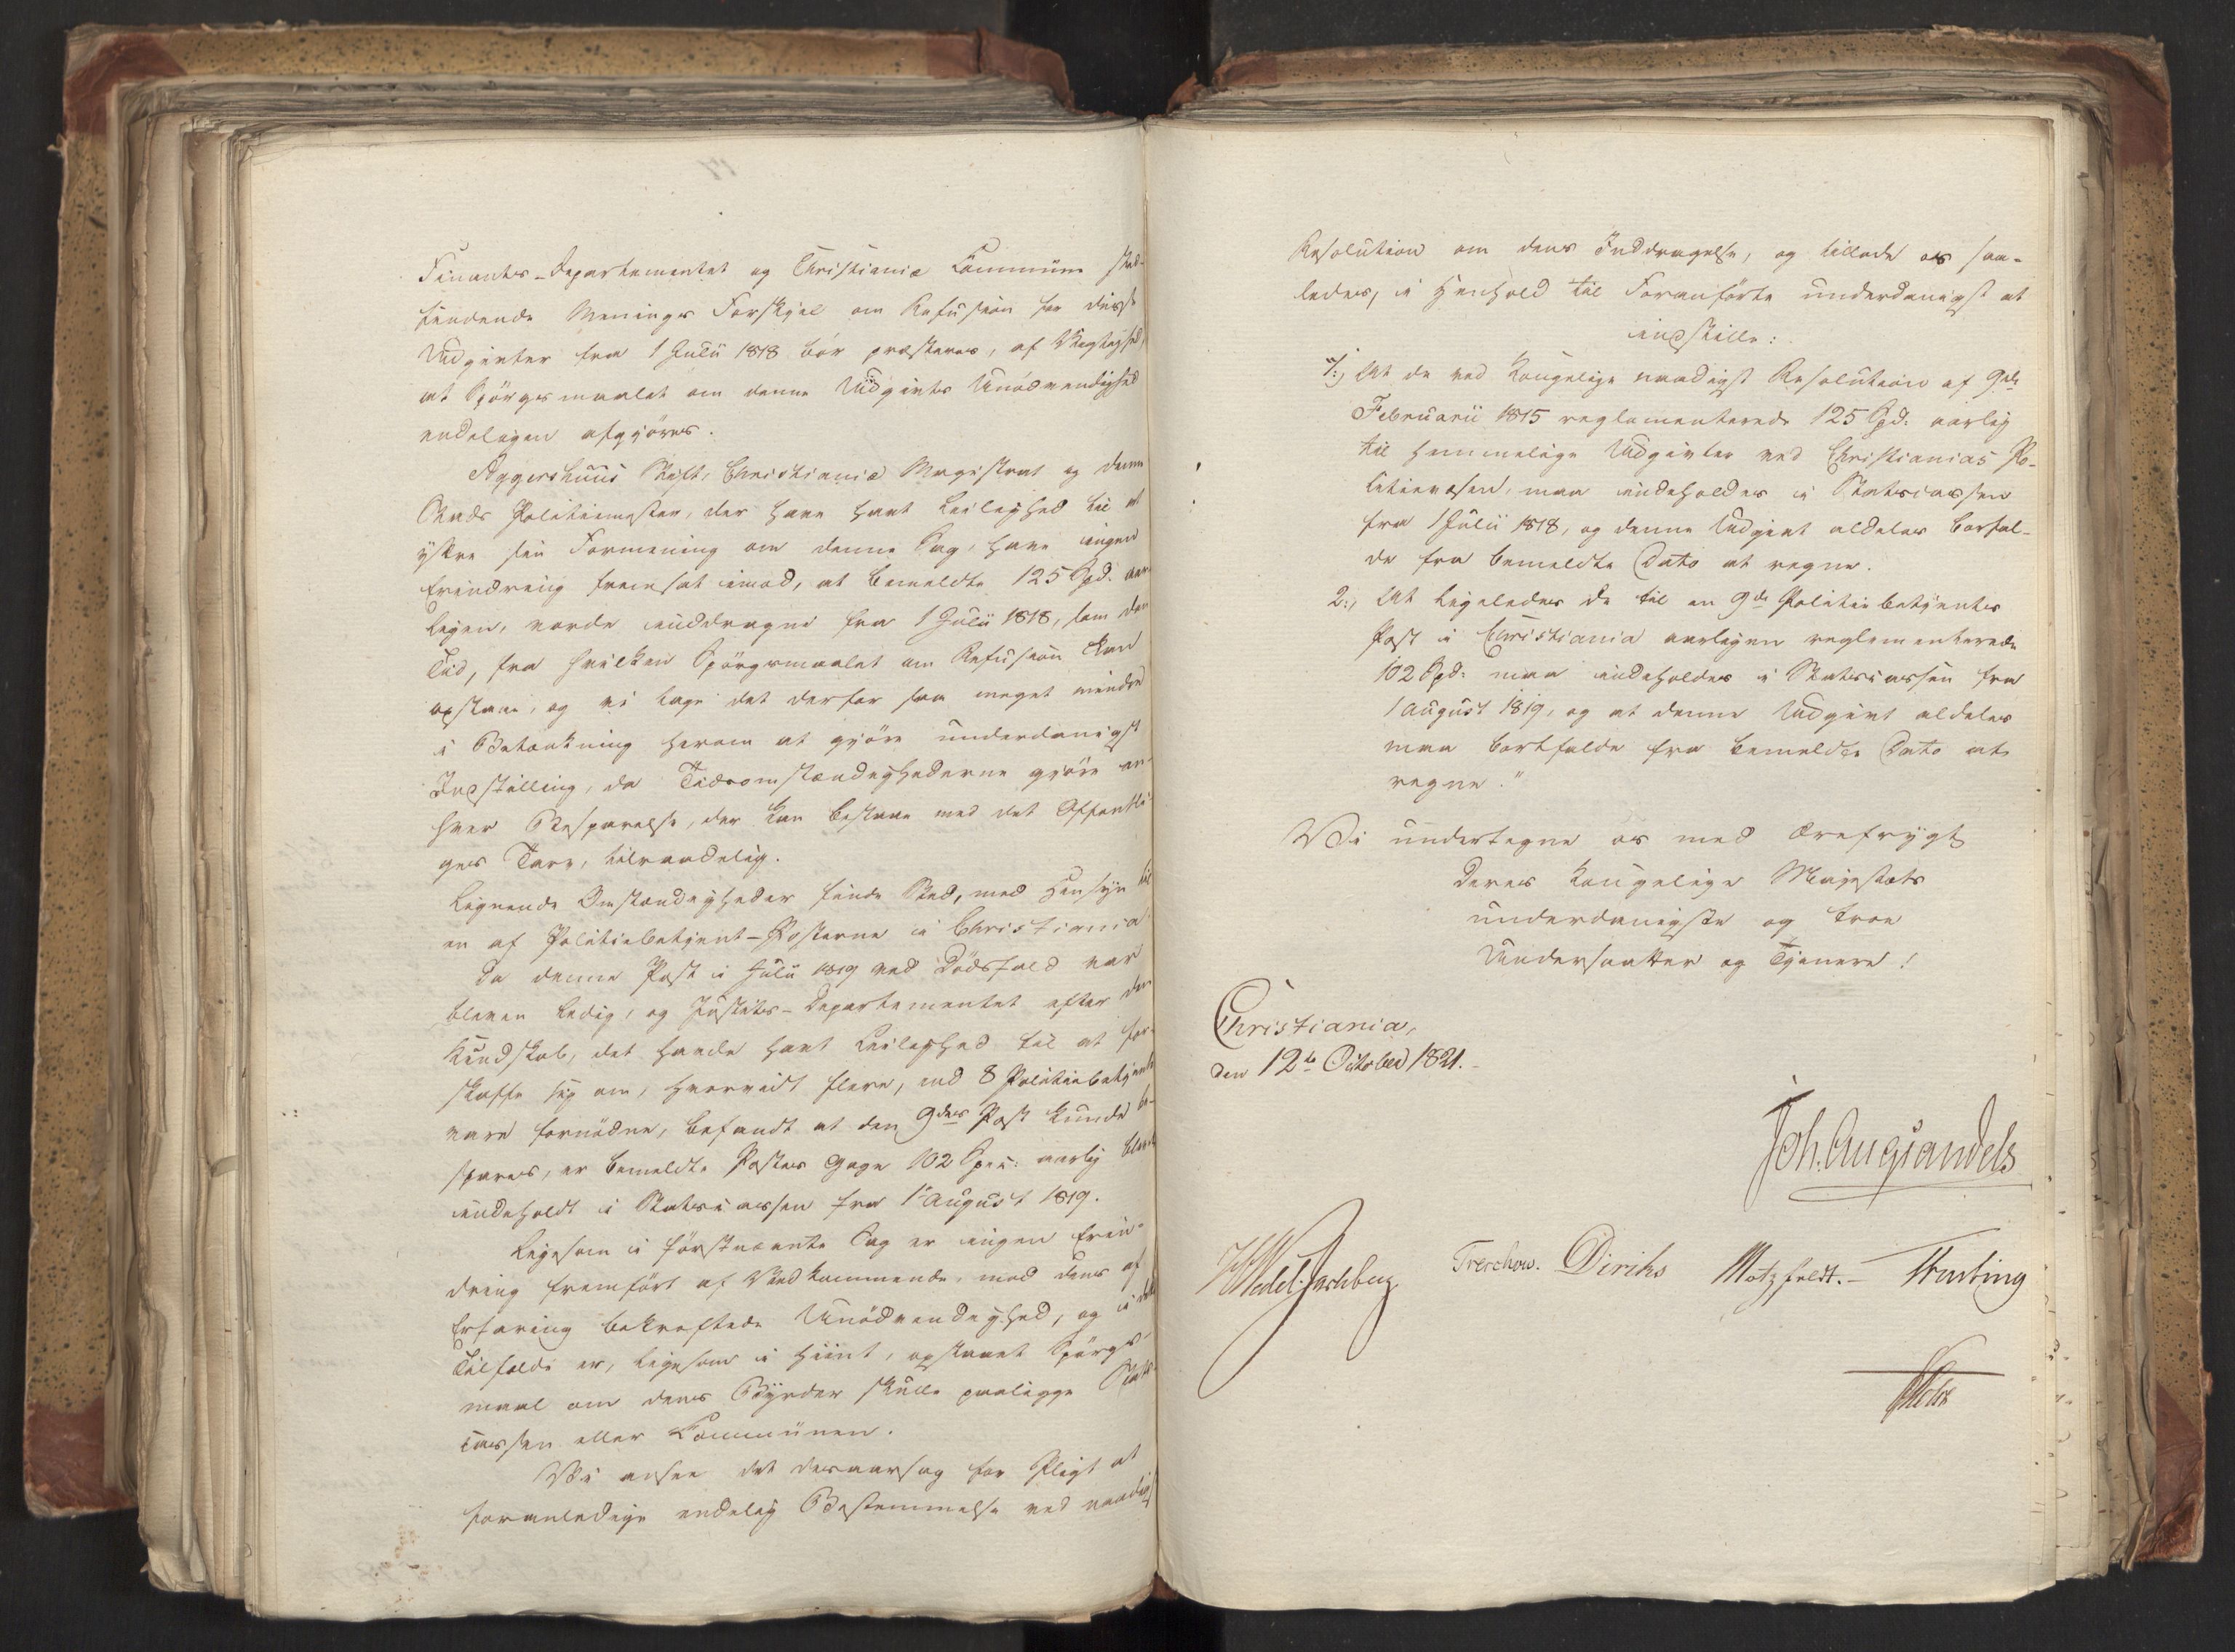 Finants-Departementet og Christiania Commune sted-
findende Menings Forskjel om Refusion for disse
Udgivter fra 1 Julii 1818 bör præsteres, af Vigtighed,
at Spörgsmaalet om denne Udgivts Unödvendighed
endeligen afgjöres.
Aggershuus Stift, Christiania Magistrat og denne
Stads Politiemester, der have havt Leilighed til at
yttre sin Formening om denne Sag, have ingen
Erindring fremsat imod, at bemeldte 125 Spd. aar-
ligen, vorde inddragne fra 1 Julii 1818, som den
Tid, fra hvilken Spörgsmaalet om Refusion kan
opstaae, og vi tage det derfor saa meget mindre
i Betænkning herom at gjöre underdanigst
Indstilling, da Tidsomstændighederne gjöre en-
hver Besparelse, der kan bestaae med det Offentli-
ges Tarv, tilraadelig.
Lignende Omstændigheder finde Sted, med Hensyn til
en af Politiebetjent-Posterne i Christiania
Da denne Post i Julii 1819 ved Dödsfald var
bleven ledig, og Justits-Departementet efter den
Kundskab, det havde havt Leilighed til at for-
skaffe sig om, hvorvidt flere, end 8 Politiebetjente
vare fornödne, befandt at den 9des Post kunde be-
spares, er bemeldte Postes Gage 102 Spec: aarlig bleven
indeholdt i Statscassen fra 1 August 1819.
Ligesom i förstnævnte Sag er ingen Erin-
dring fremfört af Vedkommende, mod dens af
Erfaring bekræftede Unödvendighed, og i dette
Tilfælde er, ligesom i hiint, opstaaet Spörgs-
maal om dens Byrder skulle paaligge Stats-
cassen eller Communen.
Vi ansee det desaarsag for Pligt at
foranledige endelig Bestemmelse ved naadigst
Resolution om dens Inddragelse, og tillade os saa-
ledes, i Henhold til Foranförte underdanigst at
indstille:
"1:, At de ved Kongelige naadigst Resolution af 9de
Februarii 1815 reglementerede 125 Spd: aarlig
til hemmelige Udgivter ved Christianias Po-
litievæsen, maa indeholdes i Statscassen
fra 1 Julii 1818, og denne Udgivt aldeles bortfal-
de fra bemeldte Dato at regne.
2:, At ligeledes de til en 9de Politiebetjents
Post i Christiania aarligen reglementerede
102 Spd: maa indeholdes i Statscassen fra
1 August 1819, og at denne Udgivt aldeles
maa bortfalde fra bemeldte Dato at
regne."
Vi undertegne os med Ærefrygt
Deres Kongelige Majestæts
underdanigste og troe
Undersaatter og Tjenere!
Christiania,
den 12te October 1821.
Joh. Aug Sandels
HWedel Jarlsberg
Treschow. Diriks Motzfeldt. Krebting
Holst